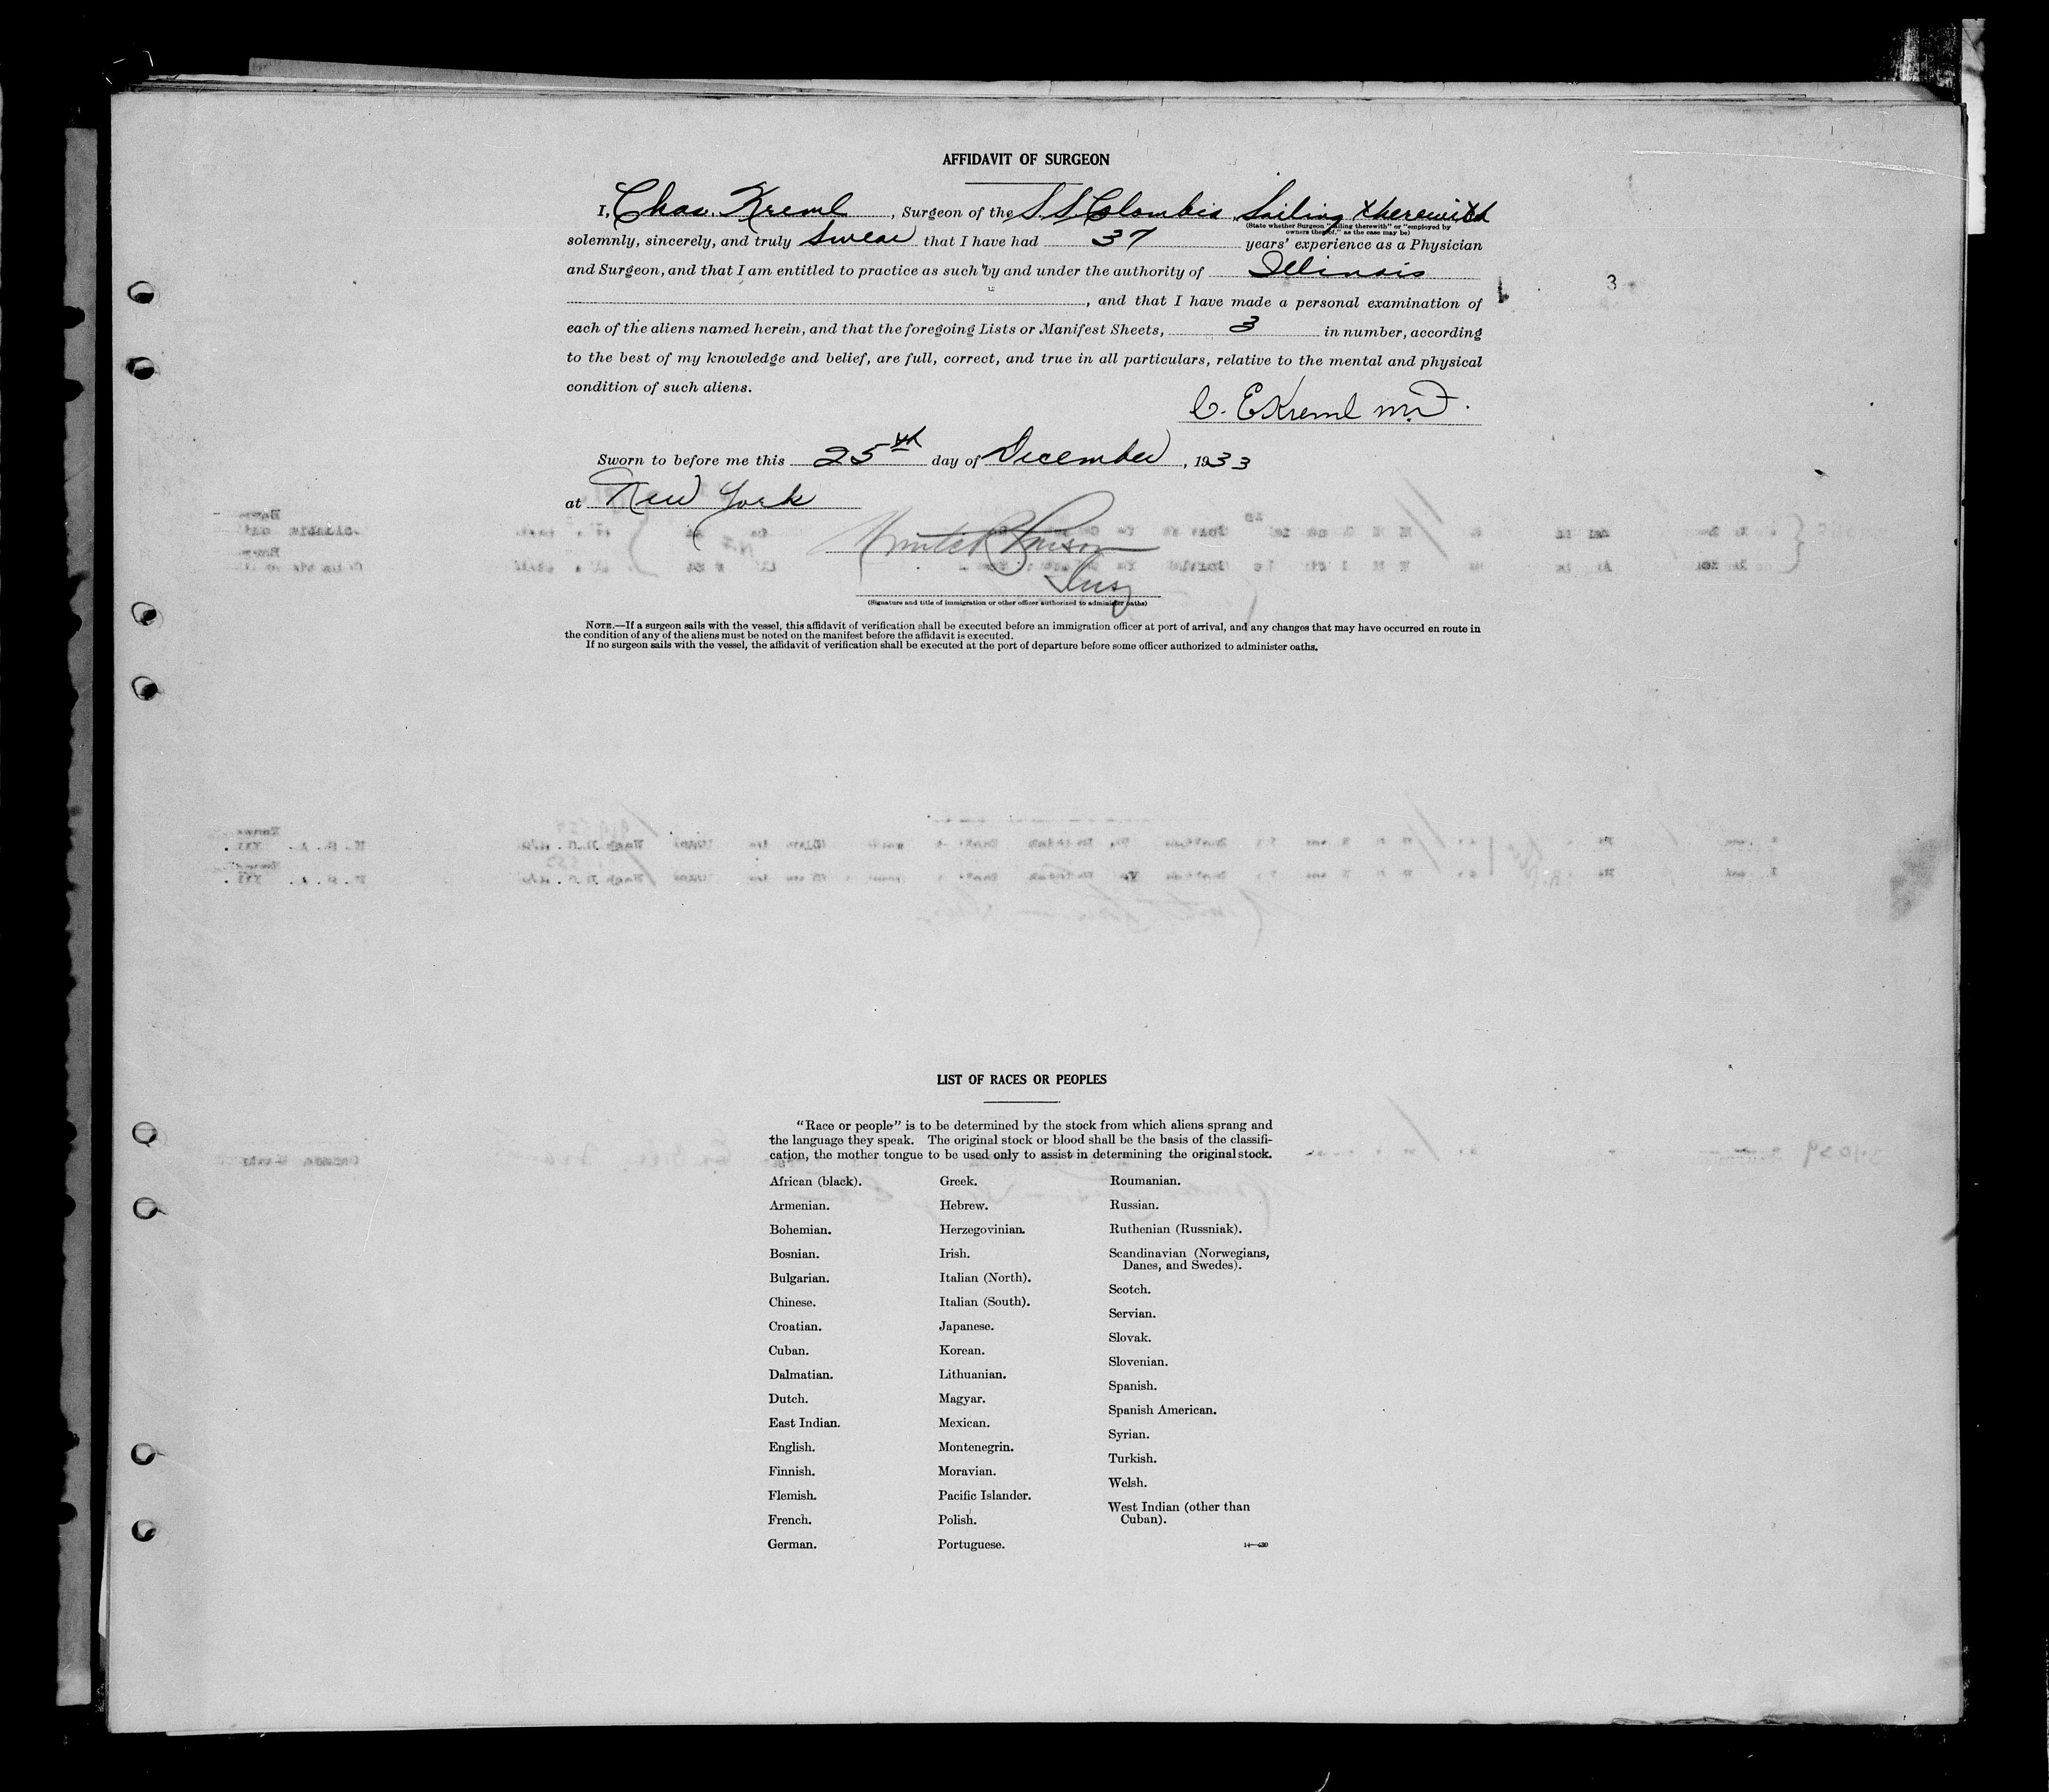 AFFIDAVIT OF SURGEON
I, Chas. Kreml, Surgeon of the S.S. Colombia Sailing therewith
(State whether Surgeon "sailing therewith" or "employed by
owners thereof," as the case may be)
solemnly, sincerely, and truly swear that I have had 37 years' experience as a Physician
and Surgeon, and that I am entitled to practice as such by and under the authority of Illinois
, and that I have made a personal examination of
3
each of the aliens named herein, and that the foregoing Lists or Manifest Sheets, 3 in number, according
to the best of my knowledge and belief, are full, correct, and true in all particulars, relative to the mental and physical
condition of such aliens.
C. E Kreml M.D.
Sworn to before me this 25th day of December, 1933
at New York
Insp
(Signature and title of immigration or other officer authorized to administer oaths)
NOTE.—If a surgeon sails with the vessel, this affidavit of verification shall be executed before an immigration officer at port of arrival, and any changes that may have occurred en route in
the condition of any of the aliens must be noted on the manifest before the affidavit is executed.
If no surgeon sails with the vessel, the affidavit of verification shall be executed at the port of departure before some officer authorized to administer oaths.
LIST OF RACES OR PEOPLES
"Race or people" is to be determined by the stock from which aliens sprang and
the language they speak. The original stock or blood shall be the basis of the classifi-
cation, the mother tongue to be used only to assist in determining the original stock.
African (black).
Armenian.
Bohemian.
Bosnian.
Bulgarian.
Chinese.
Croatian.
Cuban.
Dalmatian.
Dutch.
East Indian.
English.
Finnish.
Flemish.
French.
German.
Greek.
Hebrew.
Herzegovinian.
Irish.
Italian (North).
Italian (South).
Japanese.
Korean.
Lithuanian.
Magyar.
Mexican.
Montenegrin.
Moravian.
Pacific Islander.
Polish.
Portuguese.
Roumanian.
Russian.
Ruthenian (Russniak).
Scandinavian (Norwegians,
Danes, and Swedes).
Scotch.
Servian.
Slovak.
Slovenian.
Spanish.
Spanish American.
Syrian.
Turkish.
Welsh.
West Indian (other than
Cuban).